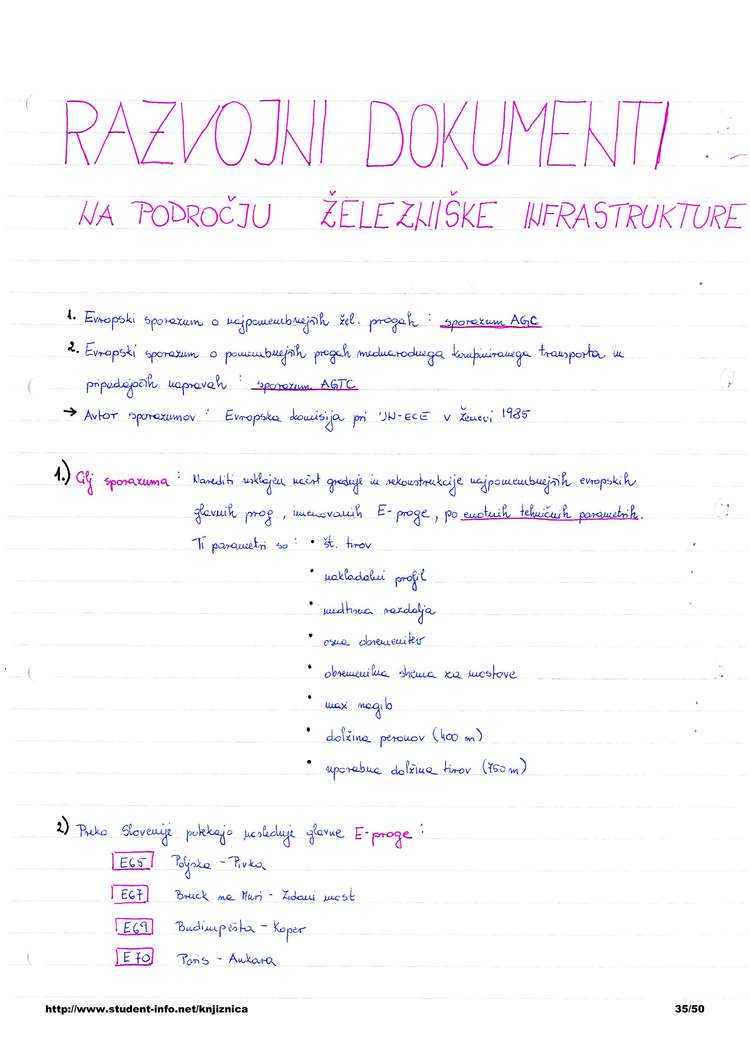 RAZVOJNI DOKUMENTI
NA PODROČJU ŽELEZNIŠKE INFRASTRUKTURE
1. Evropski sporazum o najpomembnejših žel. progah : sporazum AGC
2. Evropski sporazum o pomembnejših progah mednarodnega kombiniranega transporta in
pripadajočih napravah : sporazum AGTC
→ Avtor sporazumov : Evropska komisija pri UN-ECE v Ženevi 1985
1.) Cilj sporazuma : Narediti usklajen načrt gradnje in rekonstrukcije najpomembnejših evropskih
glavnih prog, imenovanih E-proge, po enotnih tehničnih parametrih.
Ti parametri so : • št. tirov
• nakladalni profil
• medtirna razdalja
• osna obremenitev
• obremenilna shema za mostove
• max nagib
• dolžina peronov (400 m)
• uporabna dolžina tirov (750 m)
2) Preko Slovenije potekajo naslednje glavne E-proge :
E65 Poljska - Pivka
E67 Bruck na Muri - Zidani most
E69 Budimpešta - Koper
E70 Paris - Ankara
http://www.student-info.net/knjiznica
35/50